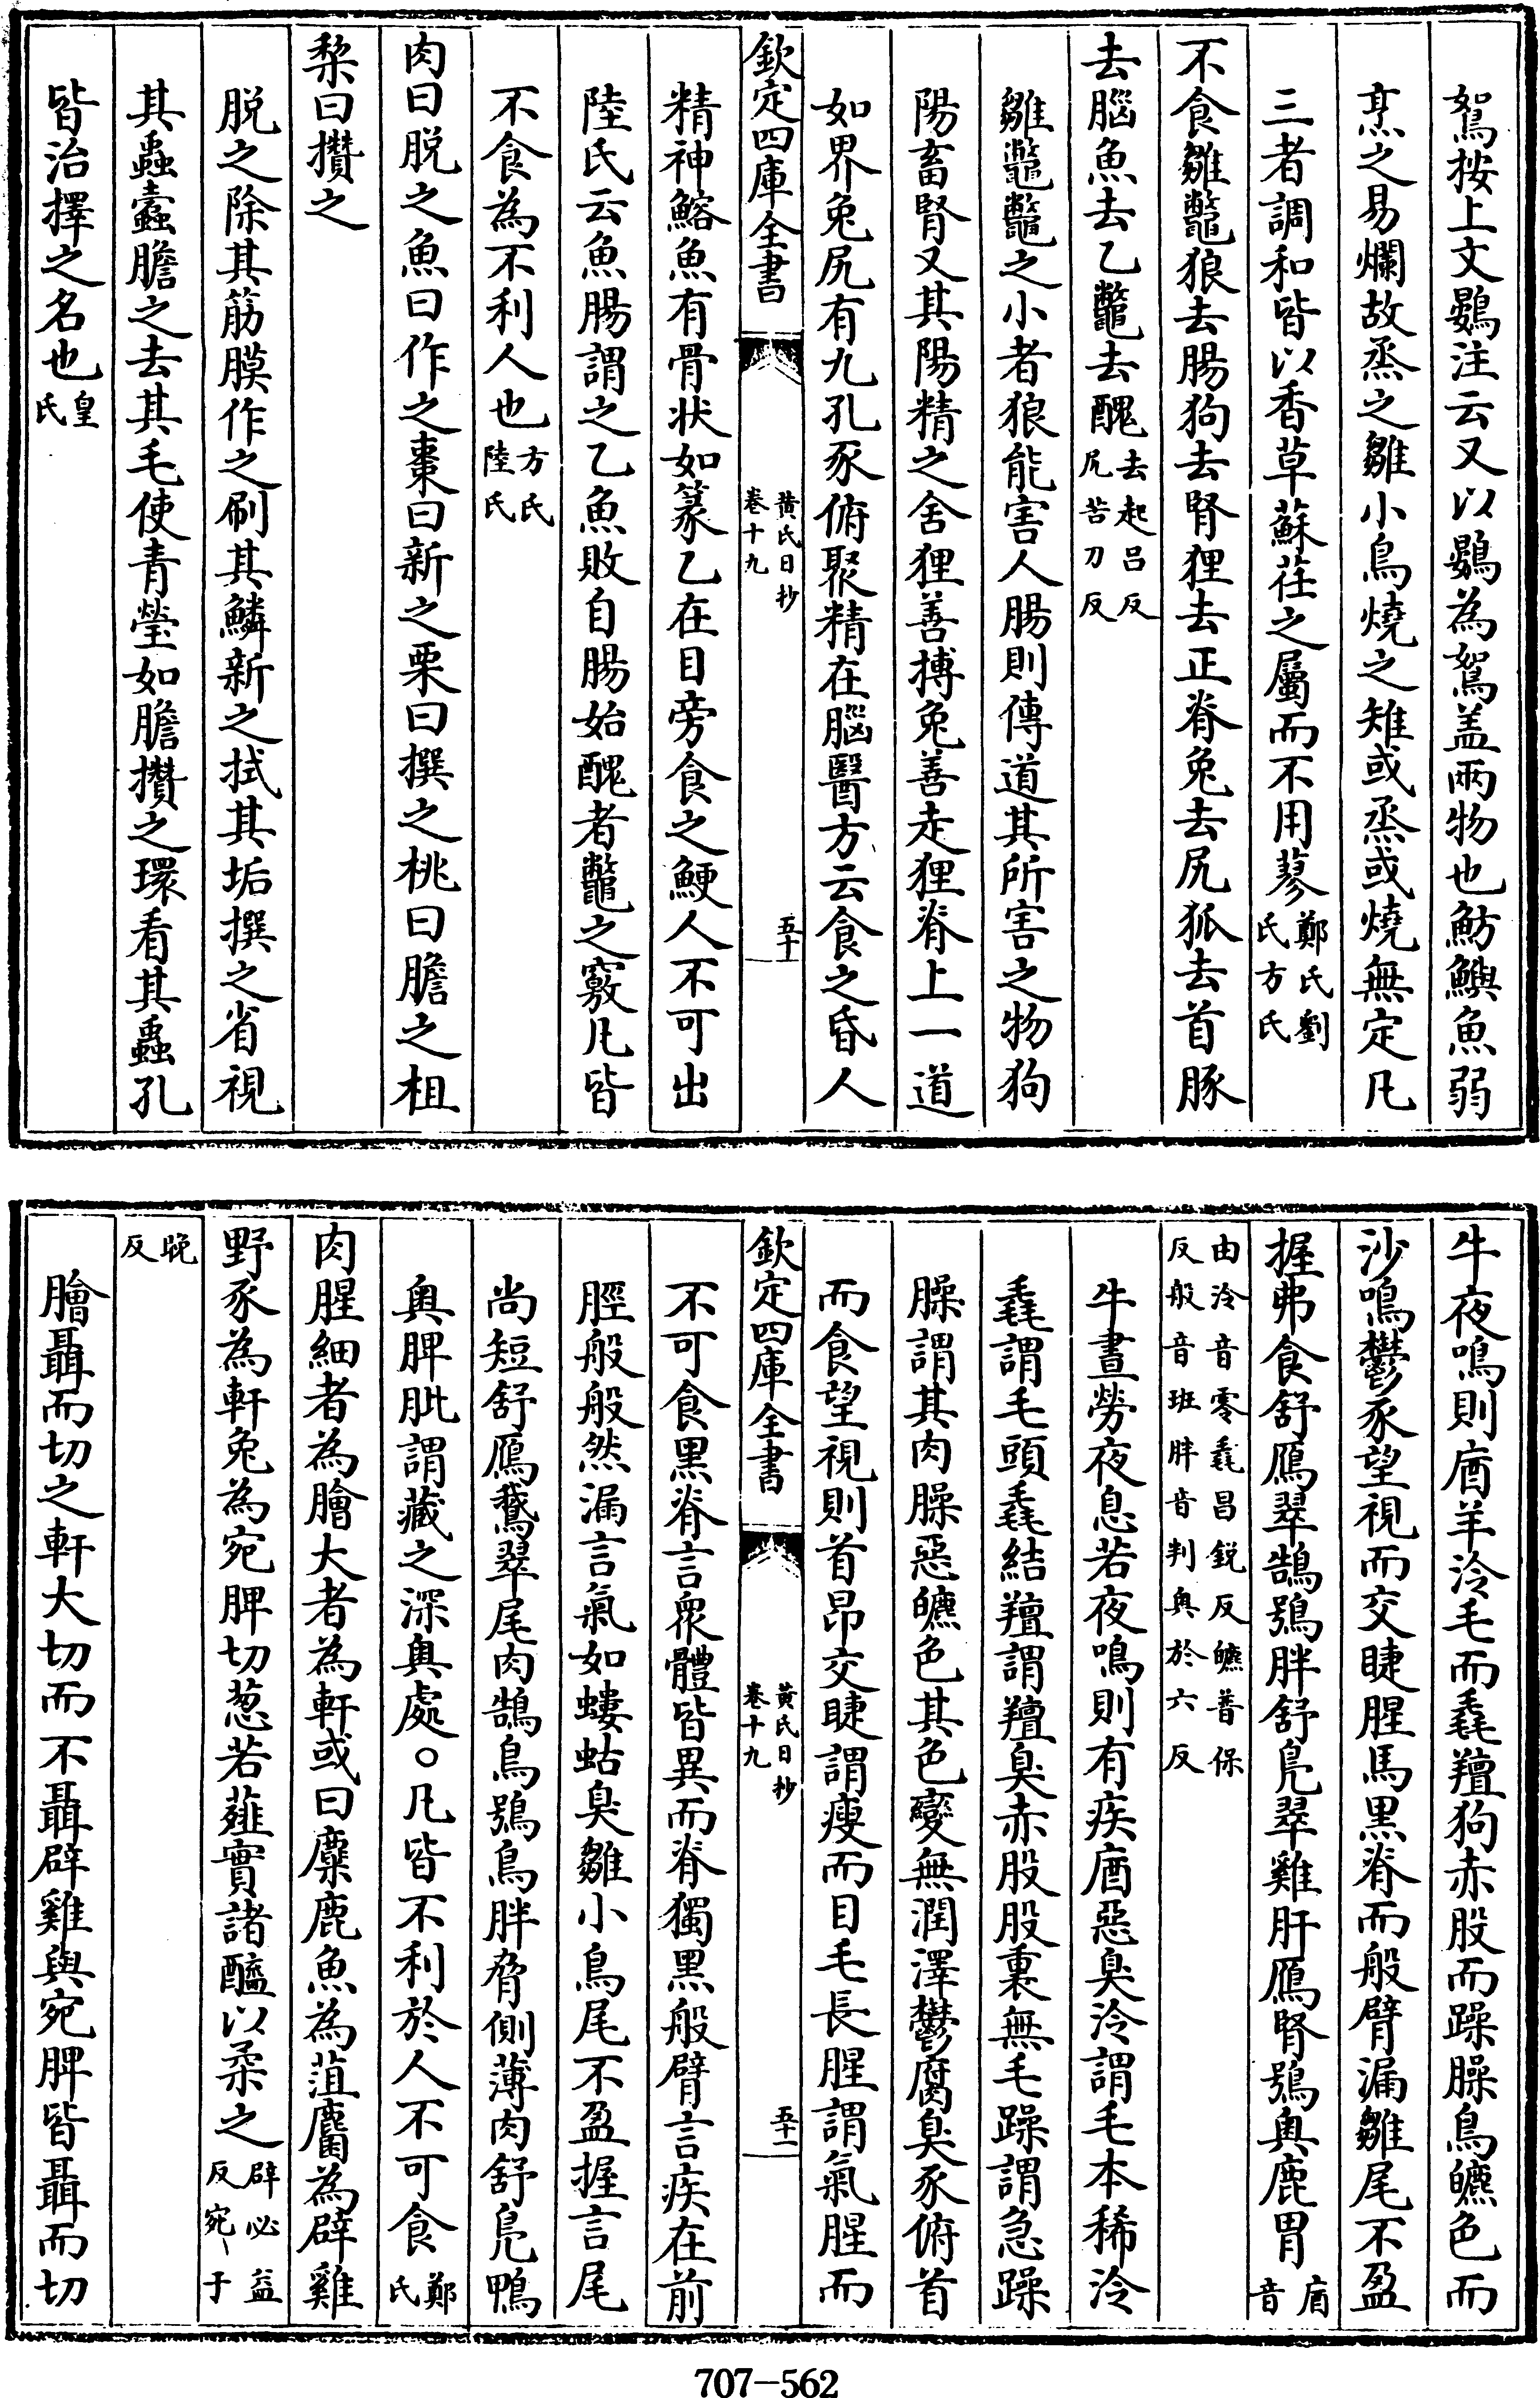 鴽按上文鷃注云又以鷃為鴽盖兩物也魴鱮魚弱
烹之易爛故烝之雛小鳥燒之雉或烝或燒無定凡
三者調和皆以香草蘇荏之屬而不用蓼鄭氏劉氏方氏
不食雛鼈狼去腸狗去腎狸去正脊兔去尻狐去首豚
去腦魚去乙鼈去醜去起吕反尻苦刀反
雛鼈鼈之小者狼能害人腸則傳道其所害之物狗
陽畜腎又其陽精之舍狸善搏兔善走狸脊上一道
如界兔尻有九孔豕俯聚精在腦醫方云食之昏人
欽定四庫全書
黄氏日抄
卷十九
五十
精神鰫魚有骨状如篆乙在目旁食之鯁人不可出
陸氏云魚腸謂之乙魚敗自腸始醜者鼈之竅凡皆
不食為不利人也方氏陸氏
肉曰脱之魚曰作之棗曰新之栗曰撰之桃曰膽之柤
棃曰攢之
脱之除其筋膜作之刷其鱗新之拭其垢撰之省視
其蟲蠧膽之去其毛使青瑩如膽攢之環看其蟲孔
皆治擇之名也皇氏
牛夜鳴則庮羊泠毛而毳羶狗赤股而躁臊鳥皫色而
沙鳴鬱豕望視而交睫腥馬黑脊而般臂漏雛尾不盈
握弗食舒鴈翠鵠鴞胖舒鳬翠雞肝鴈腎鴇奥鹿胃庮音
由泠音零毳昌鋭反皫普保反般音班胖音判奥於六反
牛晝勞夜息若夜鳴則有疾庮惡臭泠謂毛本稀泠
毳謂毛頭毳結羶謂羶臭赤股股裏無毛躁謂急躁
臊謂其肉臊惡皫色其色變無潤澤鬱腐臭豕俯首
而食望視則首昂交睫謂瘦而目毛長腥謂氣腥而
欽定四庫全書
黄氏日抄
卷十九
五十一
不可食黑脊言衆體皆異而脊獨黑般臂言疾在前
脛般般然漏言氣如螻蛄臭雛小鳥尾不盈握言尾
尚短舒鴈鵞翠尾肉鵠鳥鴞鳥胖脅側薄肉舒鳬鴨
奥脾肶謂藏之深奥處○凡皆不利於人不可食鄭氏
肉腥細者為膾大者為軒或曰麋鹿魚為菹麕為辟雞
野豕為軒兔為宛脾切葱若薤實諸醯以柔之辟必益反宛丶于
晚反
膾聶而切之軒大切而不聶辟雞與宛脾皆聶而切
707-562